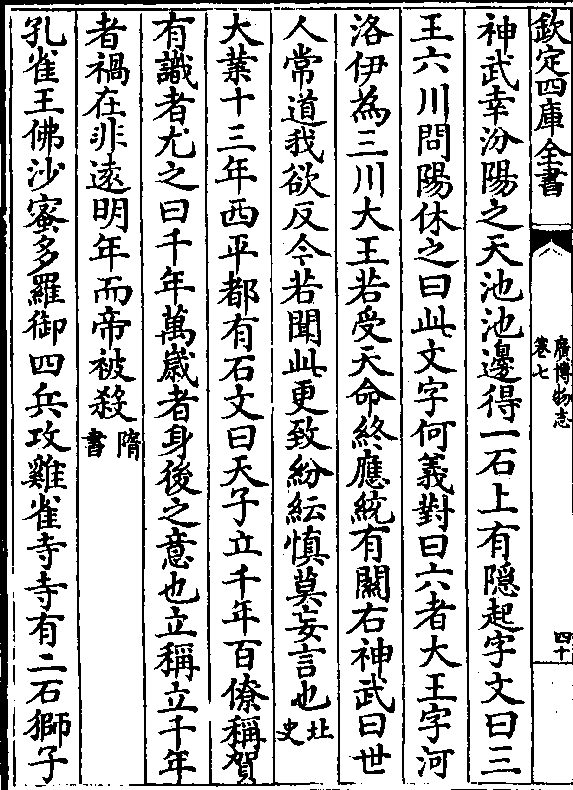 欽定四庫全書
廣博物志
卷七
四十
神武幸汾陽之天池池邊得一石上有隠起字文曰三
王六川問陽休之曰此文字何義對曰六者大王字河
洛伊為三川大王若受天命終應統有關右神武曰世
人常道我欲反今若聞此更致紛紜慎莫妄言也北史
大業十三年西平都有石文曰天子立千年百僚稱賀
有識者尤之曰千年萬歲者身後之意也立稱立千年
者禍在非遠明年而帝被殺隋書
孔雀王佛沙蜜多羅御四兵攻雞雀寺寺有二石獅子